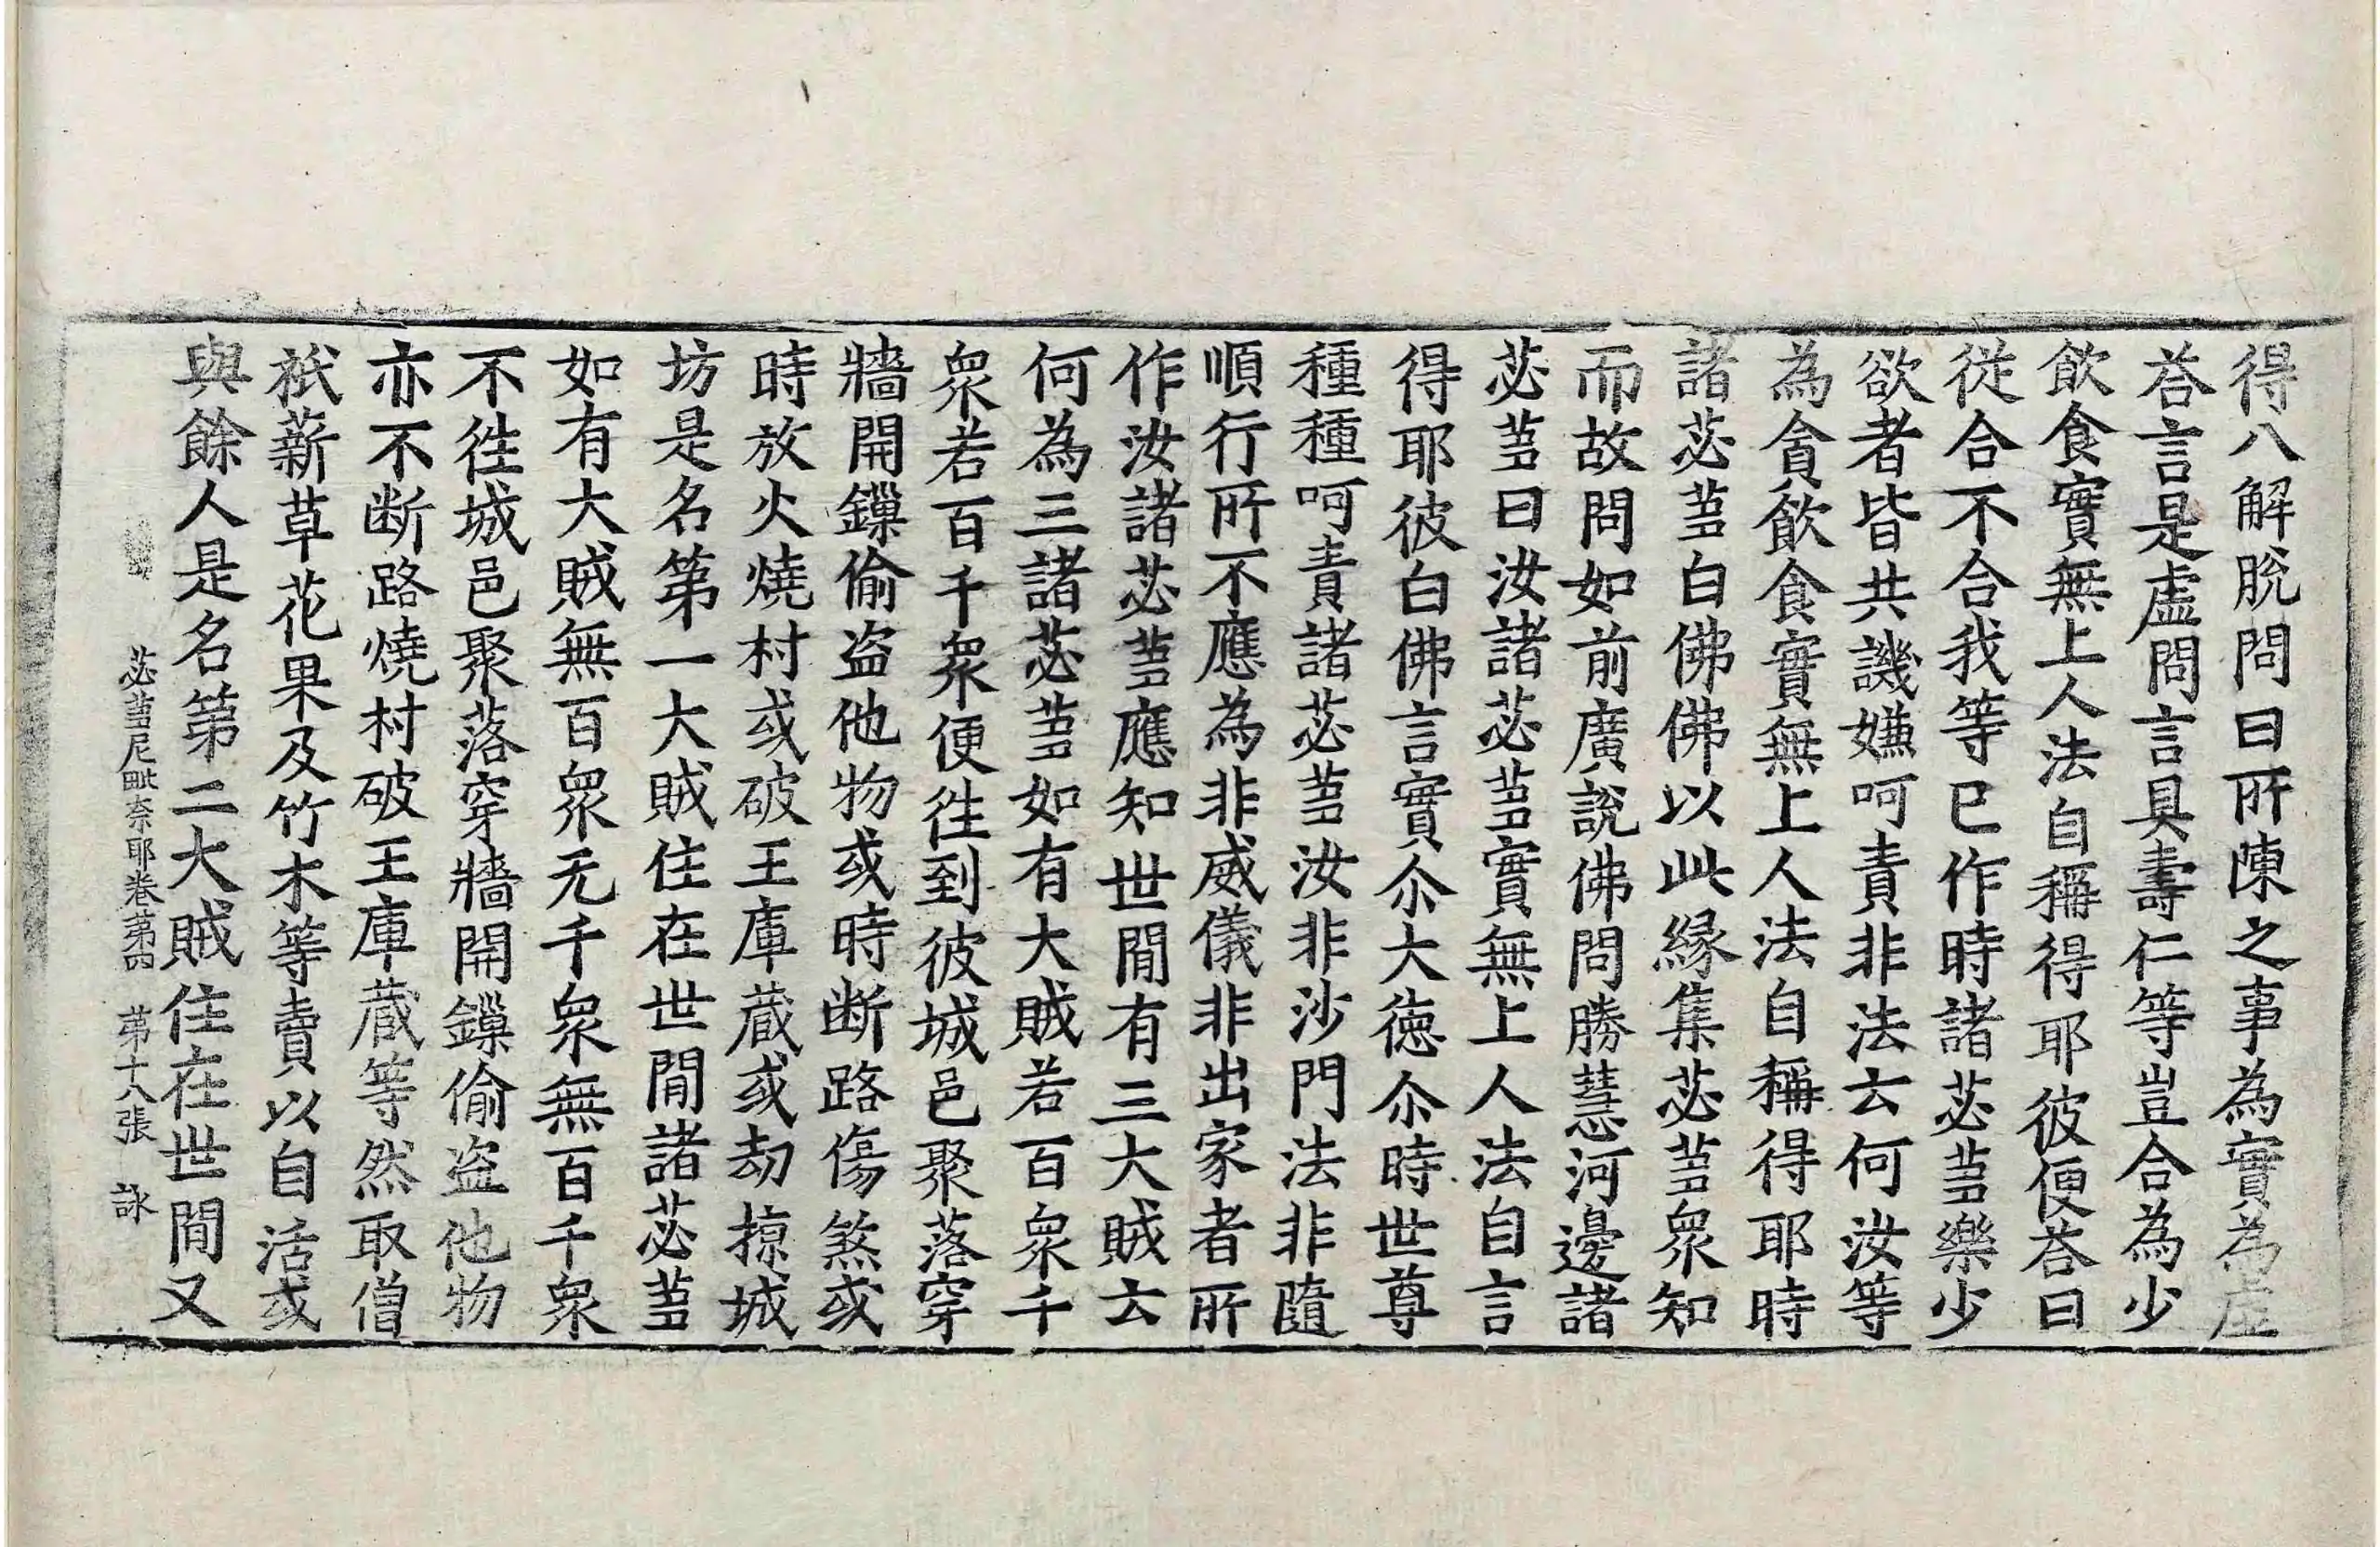 得八解脫問曰所陳之事為實為虛
荅言是虛問言具壽仁等豈合為少
飲食實無上人法自稱得耶彼便荅曰
從合不合我等已作時諸苾蒭樂少
欲者皆共譏嫌呵責非法云何汝等
為貪飲食實無上人法自稱得耶時
諸苾蒭白佛佛以此緣集苾蒭眾知
而故問如前廣說佛問勝慧河邊諸
苾蒭曰汝諸苾蒭實無上人法自言
得耶彼白佛言實尒大德尒時世尊
種種呵責諸苾蒭汝非沙門法非隨
順行所不應為非威儀非出家者所
作汝諸苾蒭應知世間有三大賊云
何為三諸苾蒭如有大賊若百眾千
眾若百千眾便往到彼城邑聚落穿
牆開鏁偷盜他物或時斷路傷煞或
時放火燒村或破王庫藏或劫掠城
坊是名第一大賊住在世間諸苾蒭
如有大賊無百眾无千眾無百千眾
不往城邑聚落穿牆開鏁偷盜他物
亦不断路燒村破王庫藏等然取僧
祇薪草花果及竹木等賣以自活或
與餘人是名第二大賊住在世間又
苾蒭尼毗奈耶卷第四 第十八張 詠